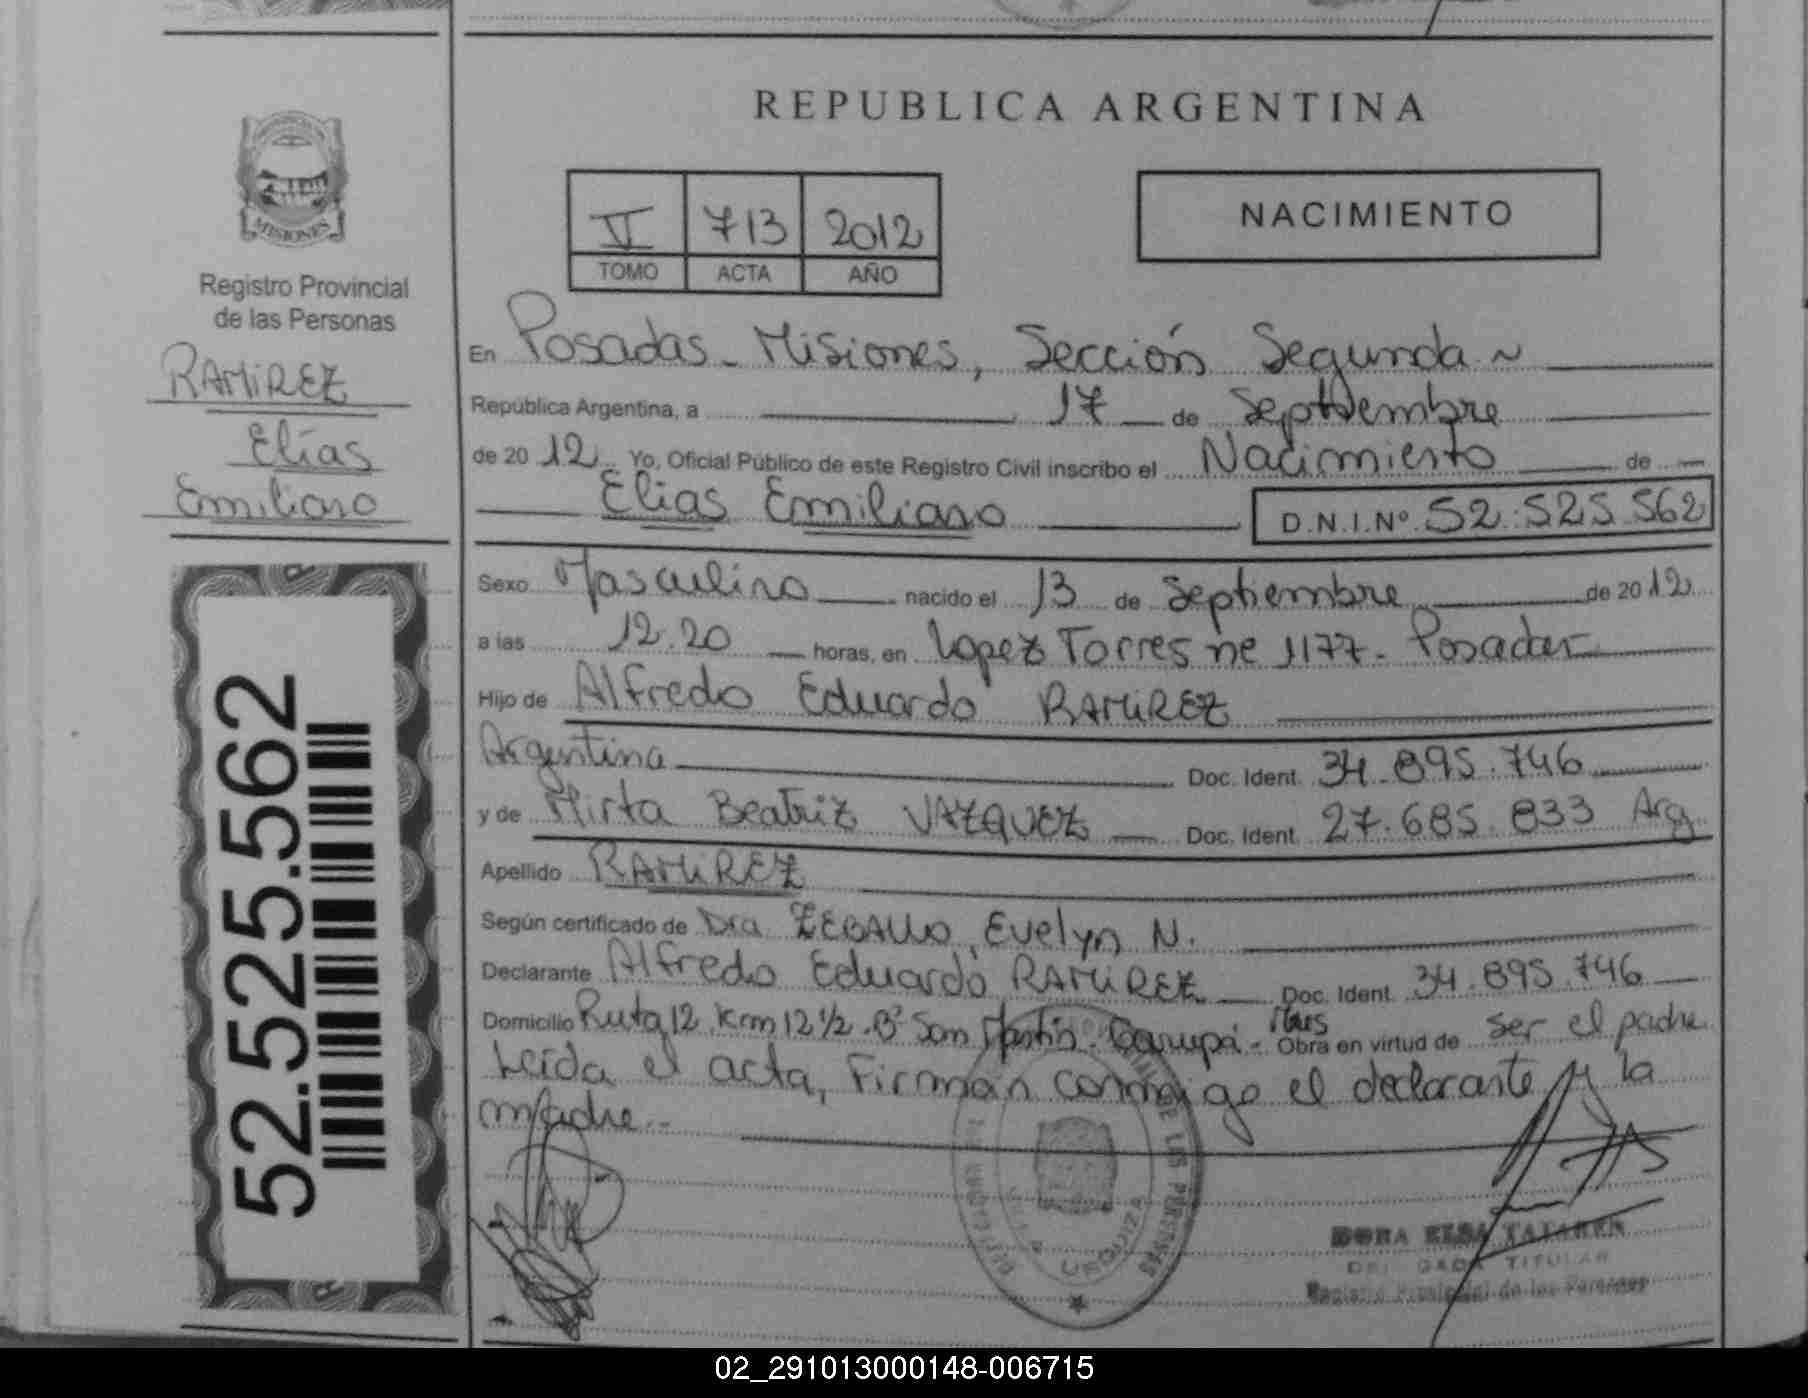 REPUBLICA ARGENTINA
MISIONES
Registro Provincial
de las Personas
RAMIREZ
Elías
Emiliano
52.525.562
713 2012
TOMO ACTA AÑO
NACIMIENTO
En Posadas - Misiones, Sección Segunda
República Argentina, a 17 de Septiembre
de 2012 Yo, Oficial Público de este Registro Civil inscribo el Nacimiento de
Elías Emiliano D.N.I.Nº 52.525.562
Sexo Masculino nacido el 13 de Septiembre de 2012
a las 12.20 horas, en Lopez Torres ne 1177 - Posadas
Hijo de Alfredo Eduardo RAMIREZ
Argentina Doc. Ident. 34.895.746
y de Mirta Beatriz VAZQUEZ Doc. Ident. 27.685.833 Arg
Apellido RAMIREZ
Según certificado de Dra ZEBALLO, Evelyn N.
Declarante Alfredo Eduardo RAMIREZ Doc. Ident. 34.895.746
Domicilio Ruta 12 Km 12 1/2 - Bº San Martin - Garupá - Obra en virtud de ser el padre
Leída el acta, Firman conmigo el declarante y la
madre.-
URQUIZA
DORA ELSA
TITULAR
Registro Provincial de las Personas
02_291013000148-006715